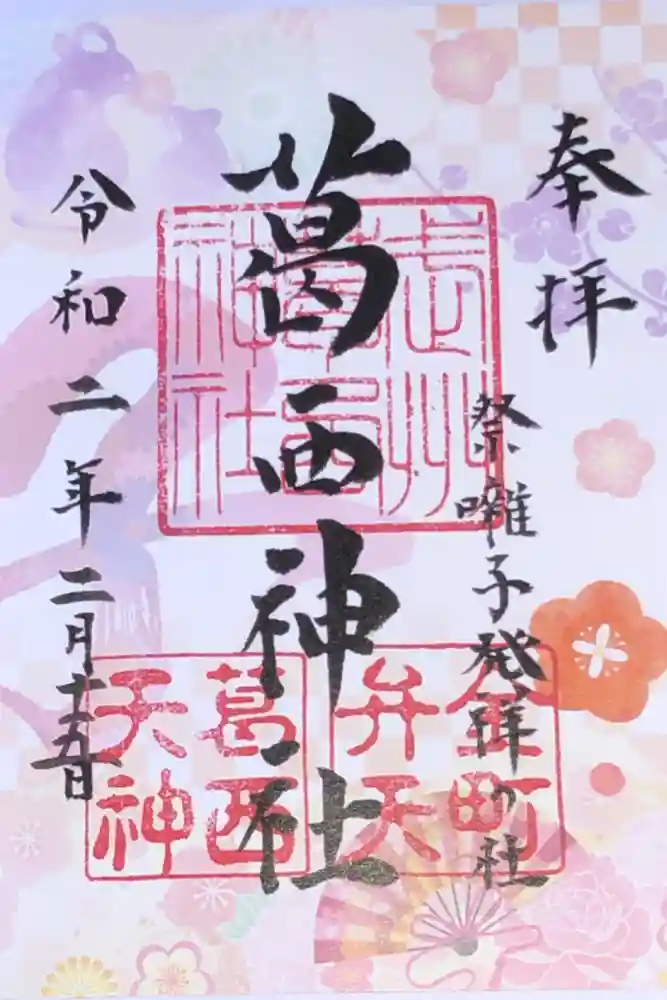 奉拝
祭囃子発祥の社
葛西神社
令和二年二月十五日
武州
葛西
神社
金町
弁天
葛西
天神